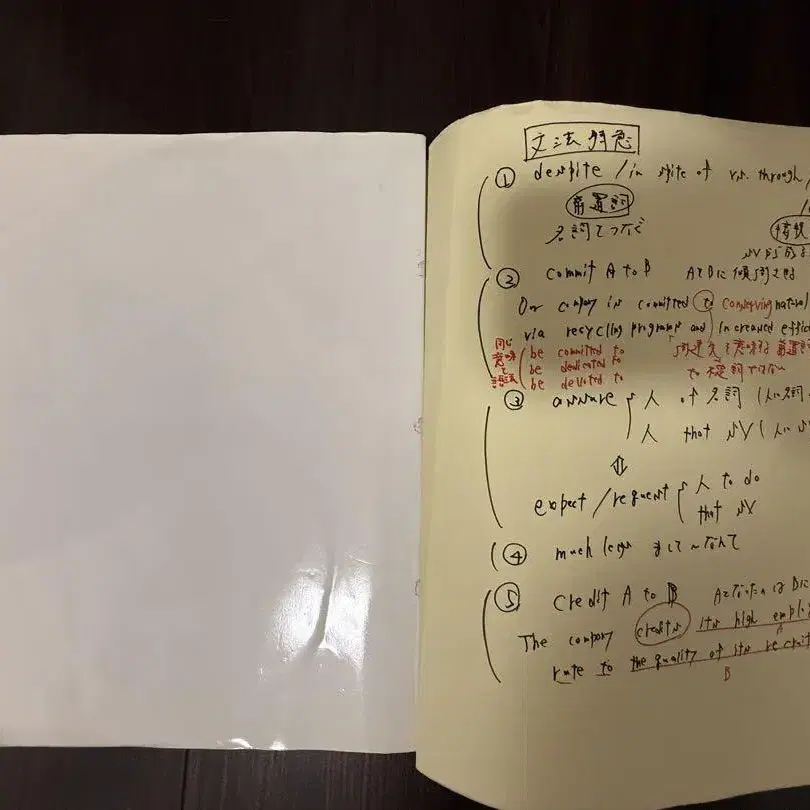 文法特急
① despite / in spite of v.s. through /
前置詞 接続
名詞をつなぐ
② commit A to B AをBに傾ける
Our company is committed to conserving natural
via recycling programs and increased effic
同じ意味を be committed to
be dedicated to
be devoted to to 不定詞ではない
③ assure 人 of 名詞 (人に名詞
人 that SV (人に
⇕
expect / request 人 to do
that SV
④ much less まして〜なんて
⑤ credit A to B
The company credits its high emplo
A
rate to the quality of its recruit
B